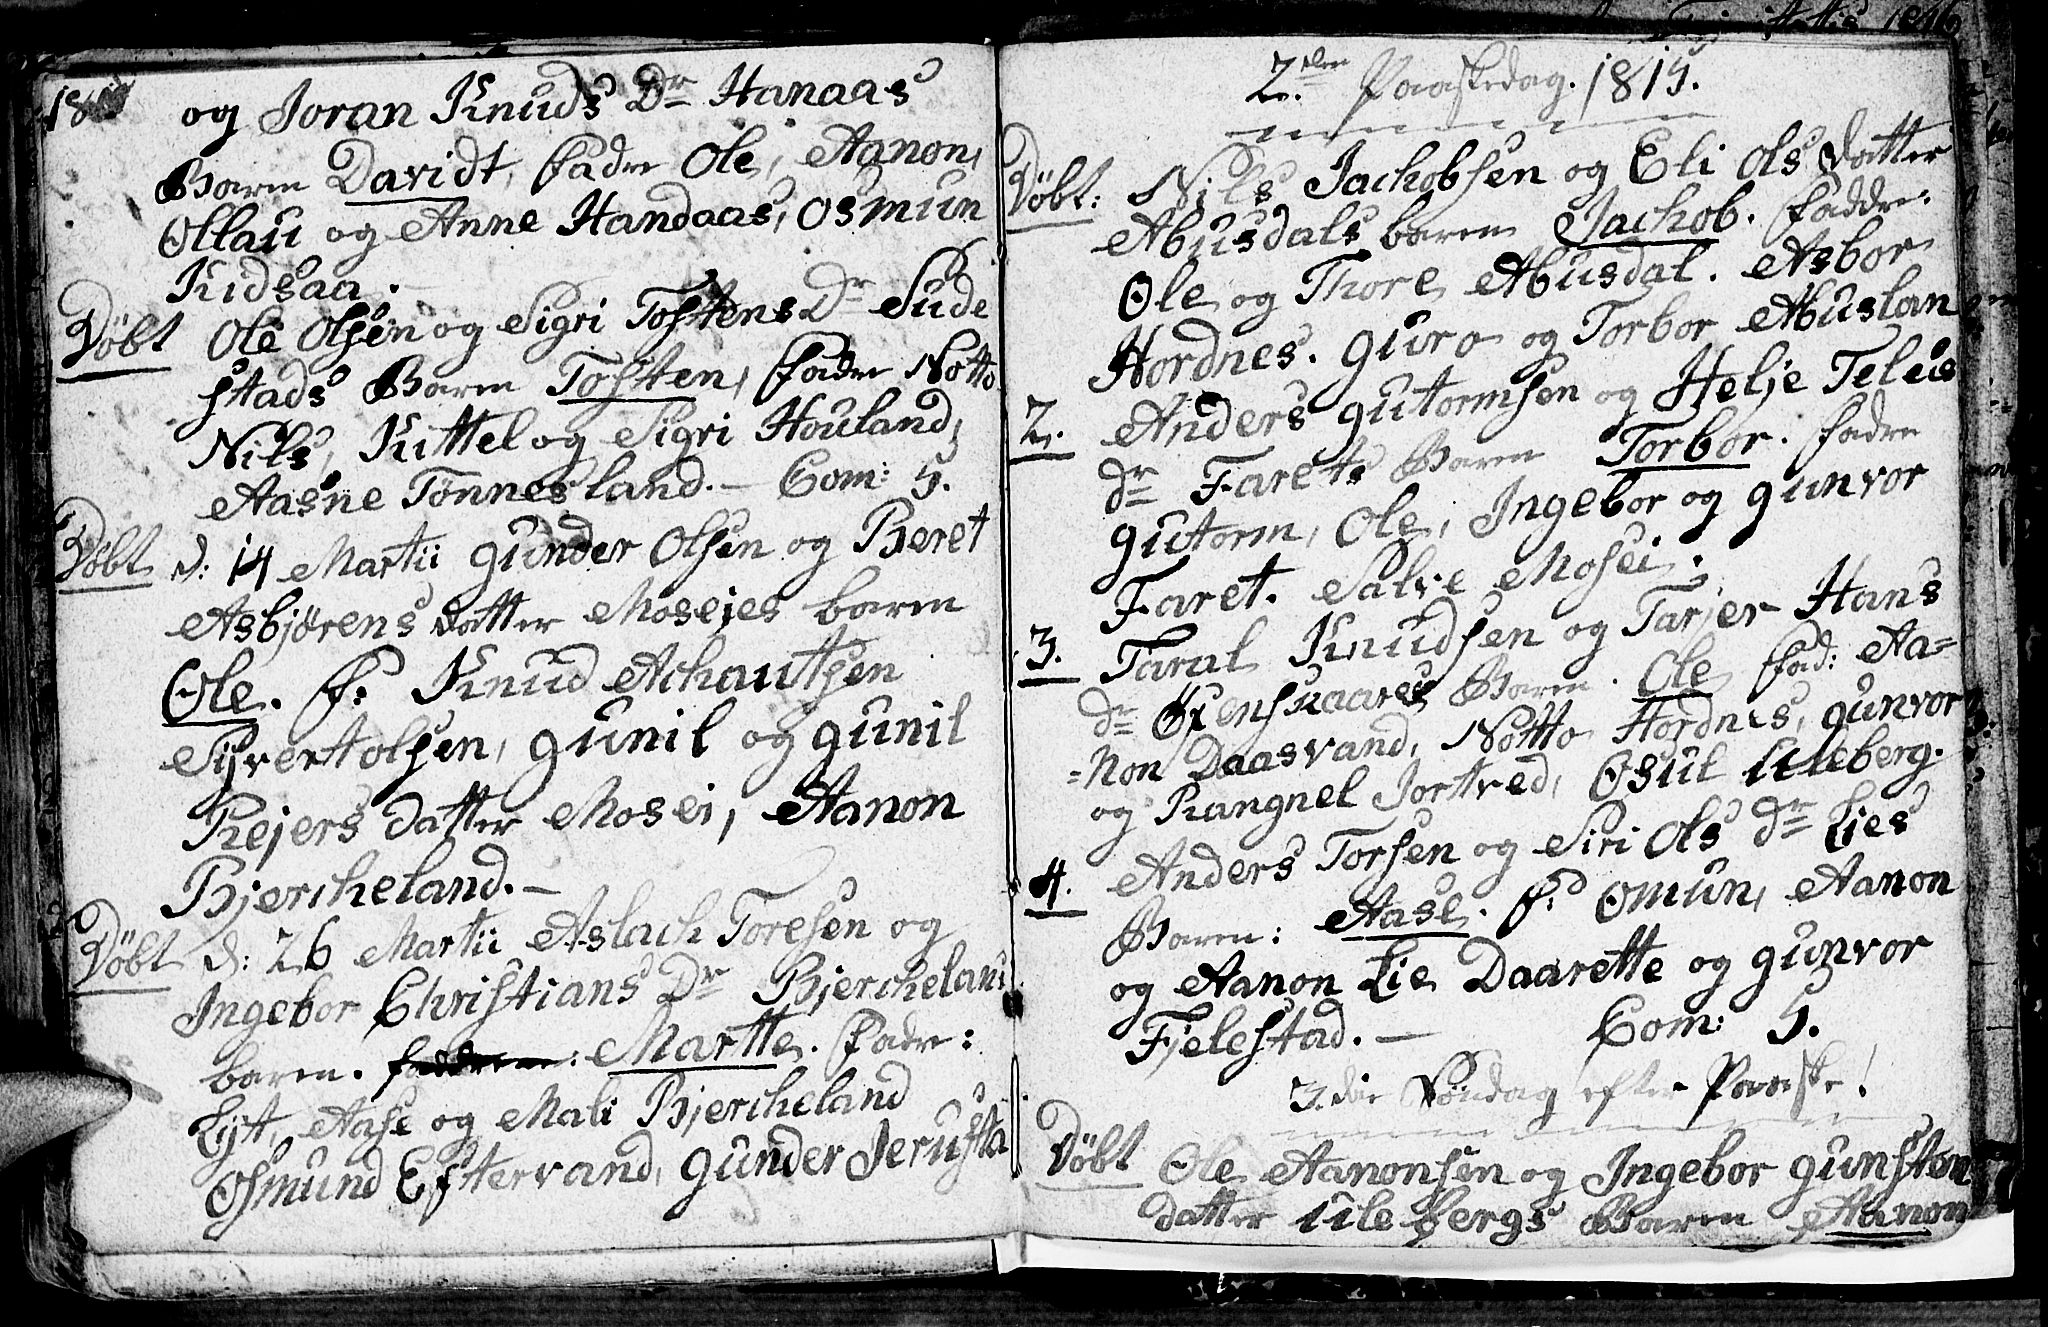 og Joran Knuds Dr Hanaas
Barn Davidt, Fadre Ole, Aanon,
Ollau og Anne Handaas, Osmun
Kidsaa.
Döbt Ole Olsen og Sigri Tostens Dr Sude
stads Barn Tosten, Fadre Notto
Nils, Kittel og Sigri Houland,
Aasne Tönnesland. – Com: 5.
Döbt d: 14 Martii Gunder Olsen og Beret
Asbjörens datter Moseies barn
Ole. F: Knud Achautsen
Syvert olsen, gunil og gunil
Rejers datter Mosei, Aanon
Bjercheland. –
Döbt d: 26 Martii Aslach Toresen og
Ingebor Christians Dr Bjercheland
barn. Martte. Fadre:
Lyt, Aase og Mali Bjercheland
Osmund Eftervand, gunder Jerusta
2den Paaskedag. 1815.
Döbt: Nils Jachobsen og Eli Ols Datter
Abusdals barn Jachob. Faddre:
Ole og Thore Abusdal. Asbor
Hordnes. guro og Torbor Abuslan
2. Anders gutormsen og Helje Teleis
dr Farets Barn Torbor. Fadre
gutorm, Ole, Ingebor og gunvor
Faret. Salve Mosei.
3. Taral Knudsen og Tarjer Hans
dr Öxenskaares Barn. Ole Fad: Aa=
=non Daasvand, Notto Hordnes, gunvor
og Rangnel Jortved, Osul Lileberg.
4. Anders Torsen og Siri Ols dr Lies
Barn: Aase. F: Omun, Aanon
og Aanon Lie Daarette og gunvor
Fjelestad. – Com: 5.
3.die Söndag efter Paaske!
Döbt Ole Aanonsen og Ingebor gunsten
datter Lilebergs Barn Aanon